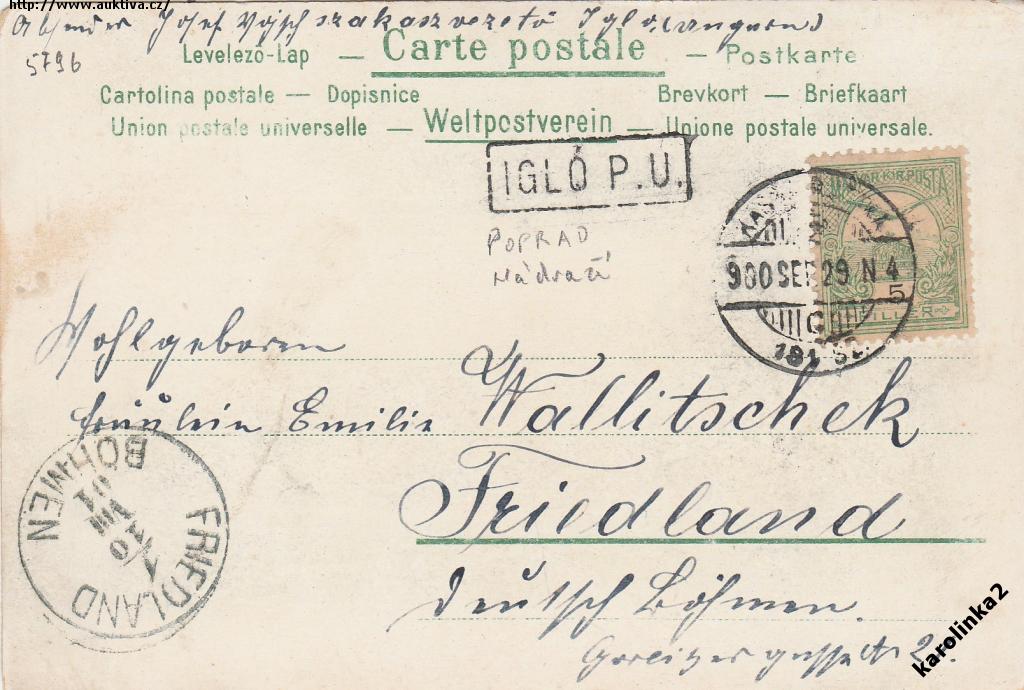 http://www.auktiva.cz/
Absender Josef Vojsch szakaszvezető Igló (Ungarn)
5796
Levelező-Lap — Carte postale — Postkarte
Cartolina postale — Dopisnice Brevkort — Briefkaart
Union postale universelle — Weltpostverein — Unione postale universale.
IGLÓ P.U.
MAGYAR KIR. POSTA
POPRAD
Nádraží
900 SEP 29 N 4
5
FILLER
181 SZ.
Wohlgeboren
Fräulein Emilie Wallitschek
Friedland
Deutsch Böhmen.
FRIEDLAND
BÖHMEN
karolinka2